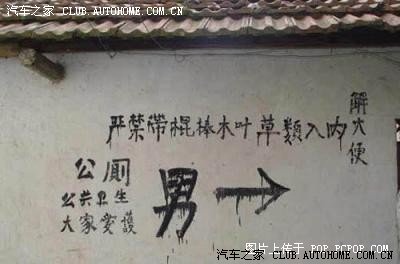 汽车之家 CLUB.AUTOHOME.COM.CN
汽车之家 CLUB.AUTOHOME.COM.CN
严禁带棍棒木叶草類入内
解大便
公厕
公共卫生
大家爱護
男
图片上传于 POP.PCPOP.COM
汽车之家 CLUB.AUTOHOME.COM.CN